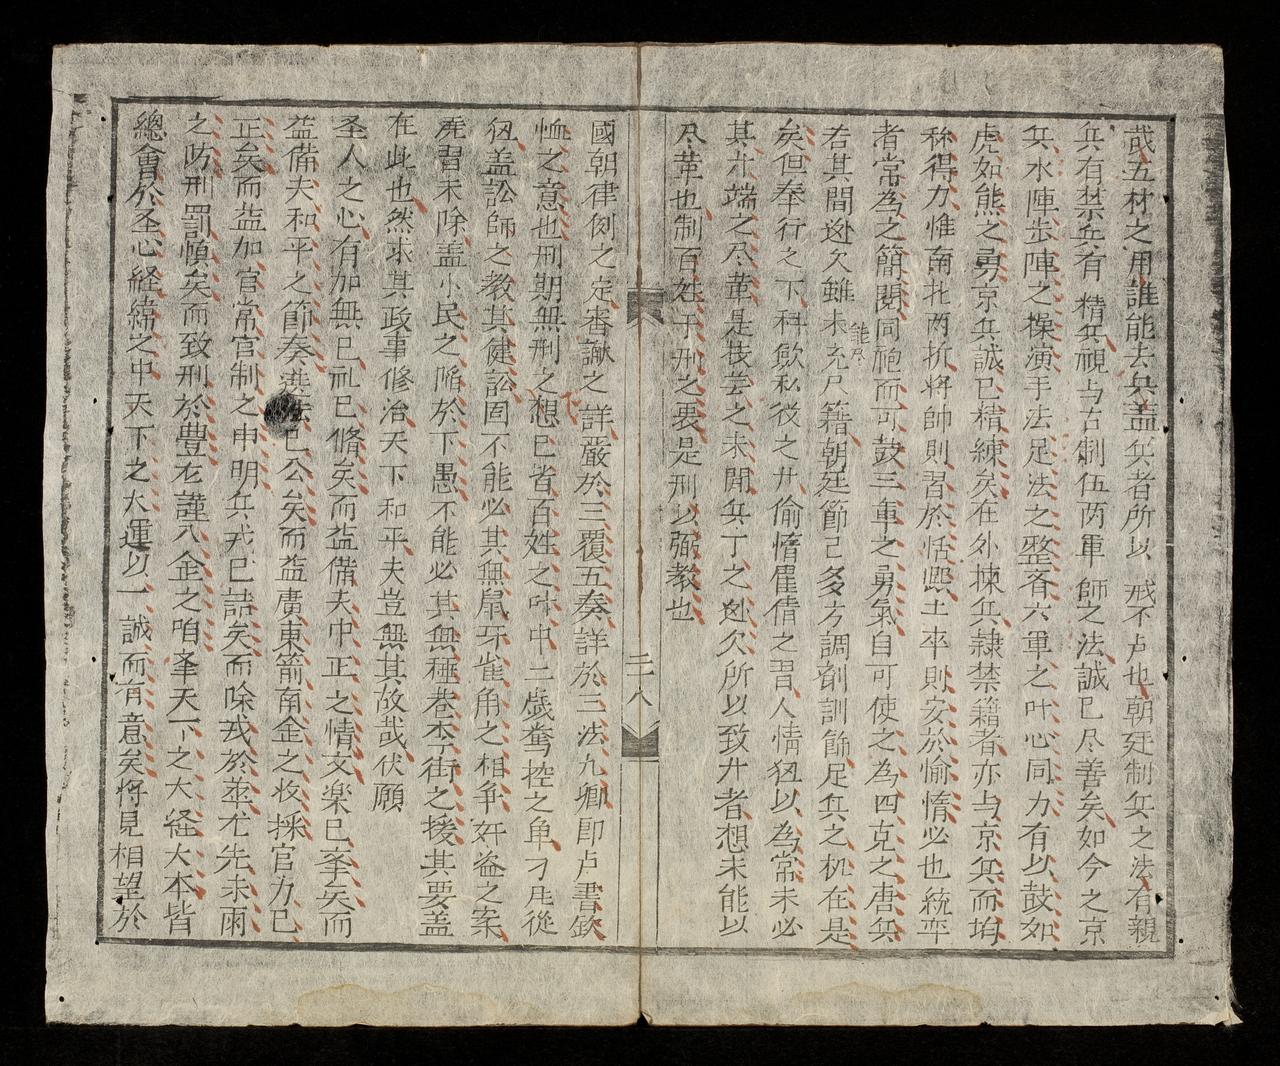 哉五材之用誰能去兵盖兵者所以戒不占也朝廷制兵之法有親
兵有禁兵有精兵視与古制伍两軍師之法誠已尽善矣如今之京
兵水陣步陣之操演手法足法之整斉六軍之叶心同力有以鼓如
虎如熊之勇京兵誠已精練矣在外揀兵隷禁籍者亦与京兵而均
稱得力惟而將帥則習於恬熙士卒則安於愉惰必也統率
者常為之簡閱同袍而可鼓三軍之勇氣自可使之為四克之唐兵
若其間迯欠雖未充尺籍朝廷節已多方調劑訓飭足兵之机在是
能尽
矣但奉行之下科歛私役之廾偷惰雇倩之習人情狃以為常未必
其廾端之尽革是技芸之未閒兵丁之迯欠所以致廾者想未能以
尽革也制百姓于刑之衷是刑以弼教也
二十八
國朝律例之定審讞之詳嚴於三覆五奏詳於三法九卿即占書欽
恤之意也刑期無刑之想已省百姓之叶中二歳鸞控之单才庄從
刍盖訟師之教其健訟固不能必其無鼠牙雀角之相爭奸盗之案
虎習未除盖小民之陷於下愚不能必其無種巷本于街之援其要盖
在此也然求其政事修治天下和平夫豈無其故哉伏願
圣人之心有加無已礼已脩矣而益備夫中正之情文楽已挙矣而
益備夫和平之節奏選法已公矣而益廣東箭南金之收採官方已
正矣而益加官常官制之申明兵戎已詰矣而除戎於萃尤先未雨
之防刑罰慎矣而致刑於豐在謹八金之咱夆天下之大経大本皆
總會於圣心経綸之中天下之大運以一誠而有意矣将見相望於